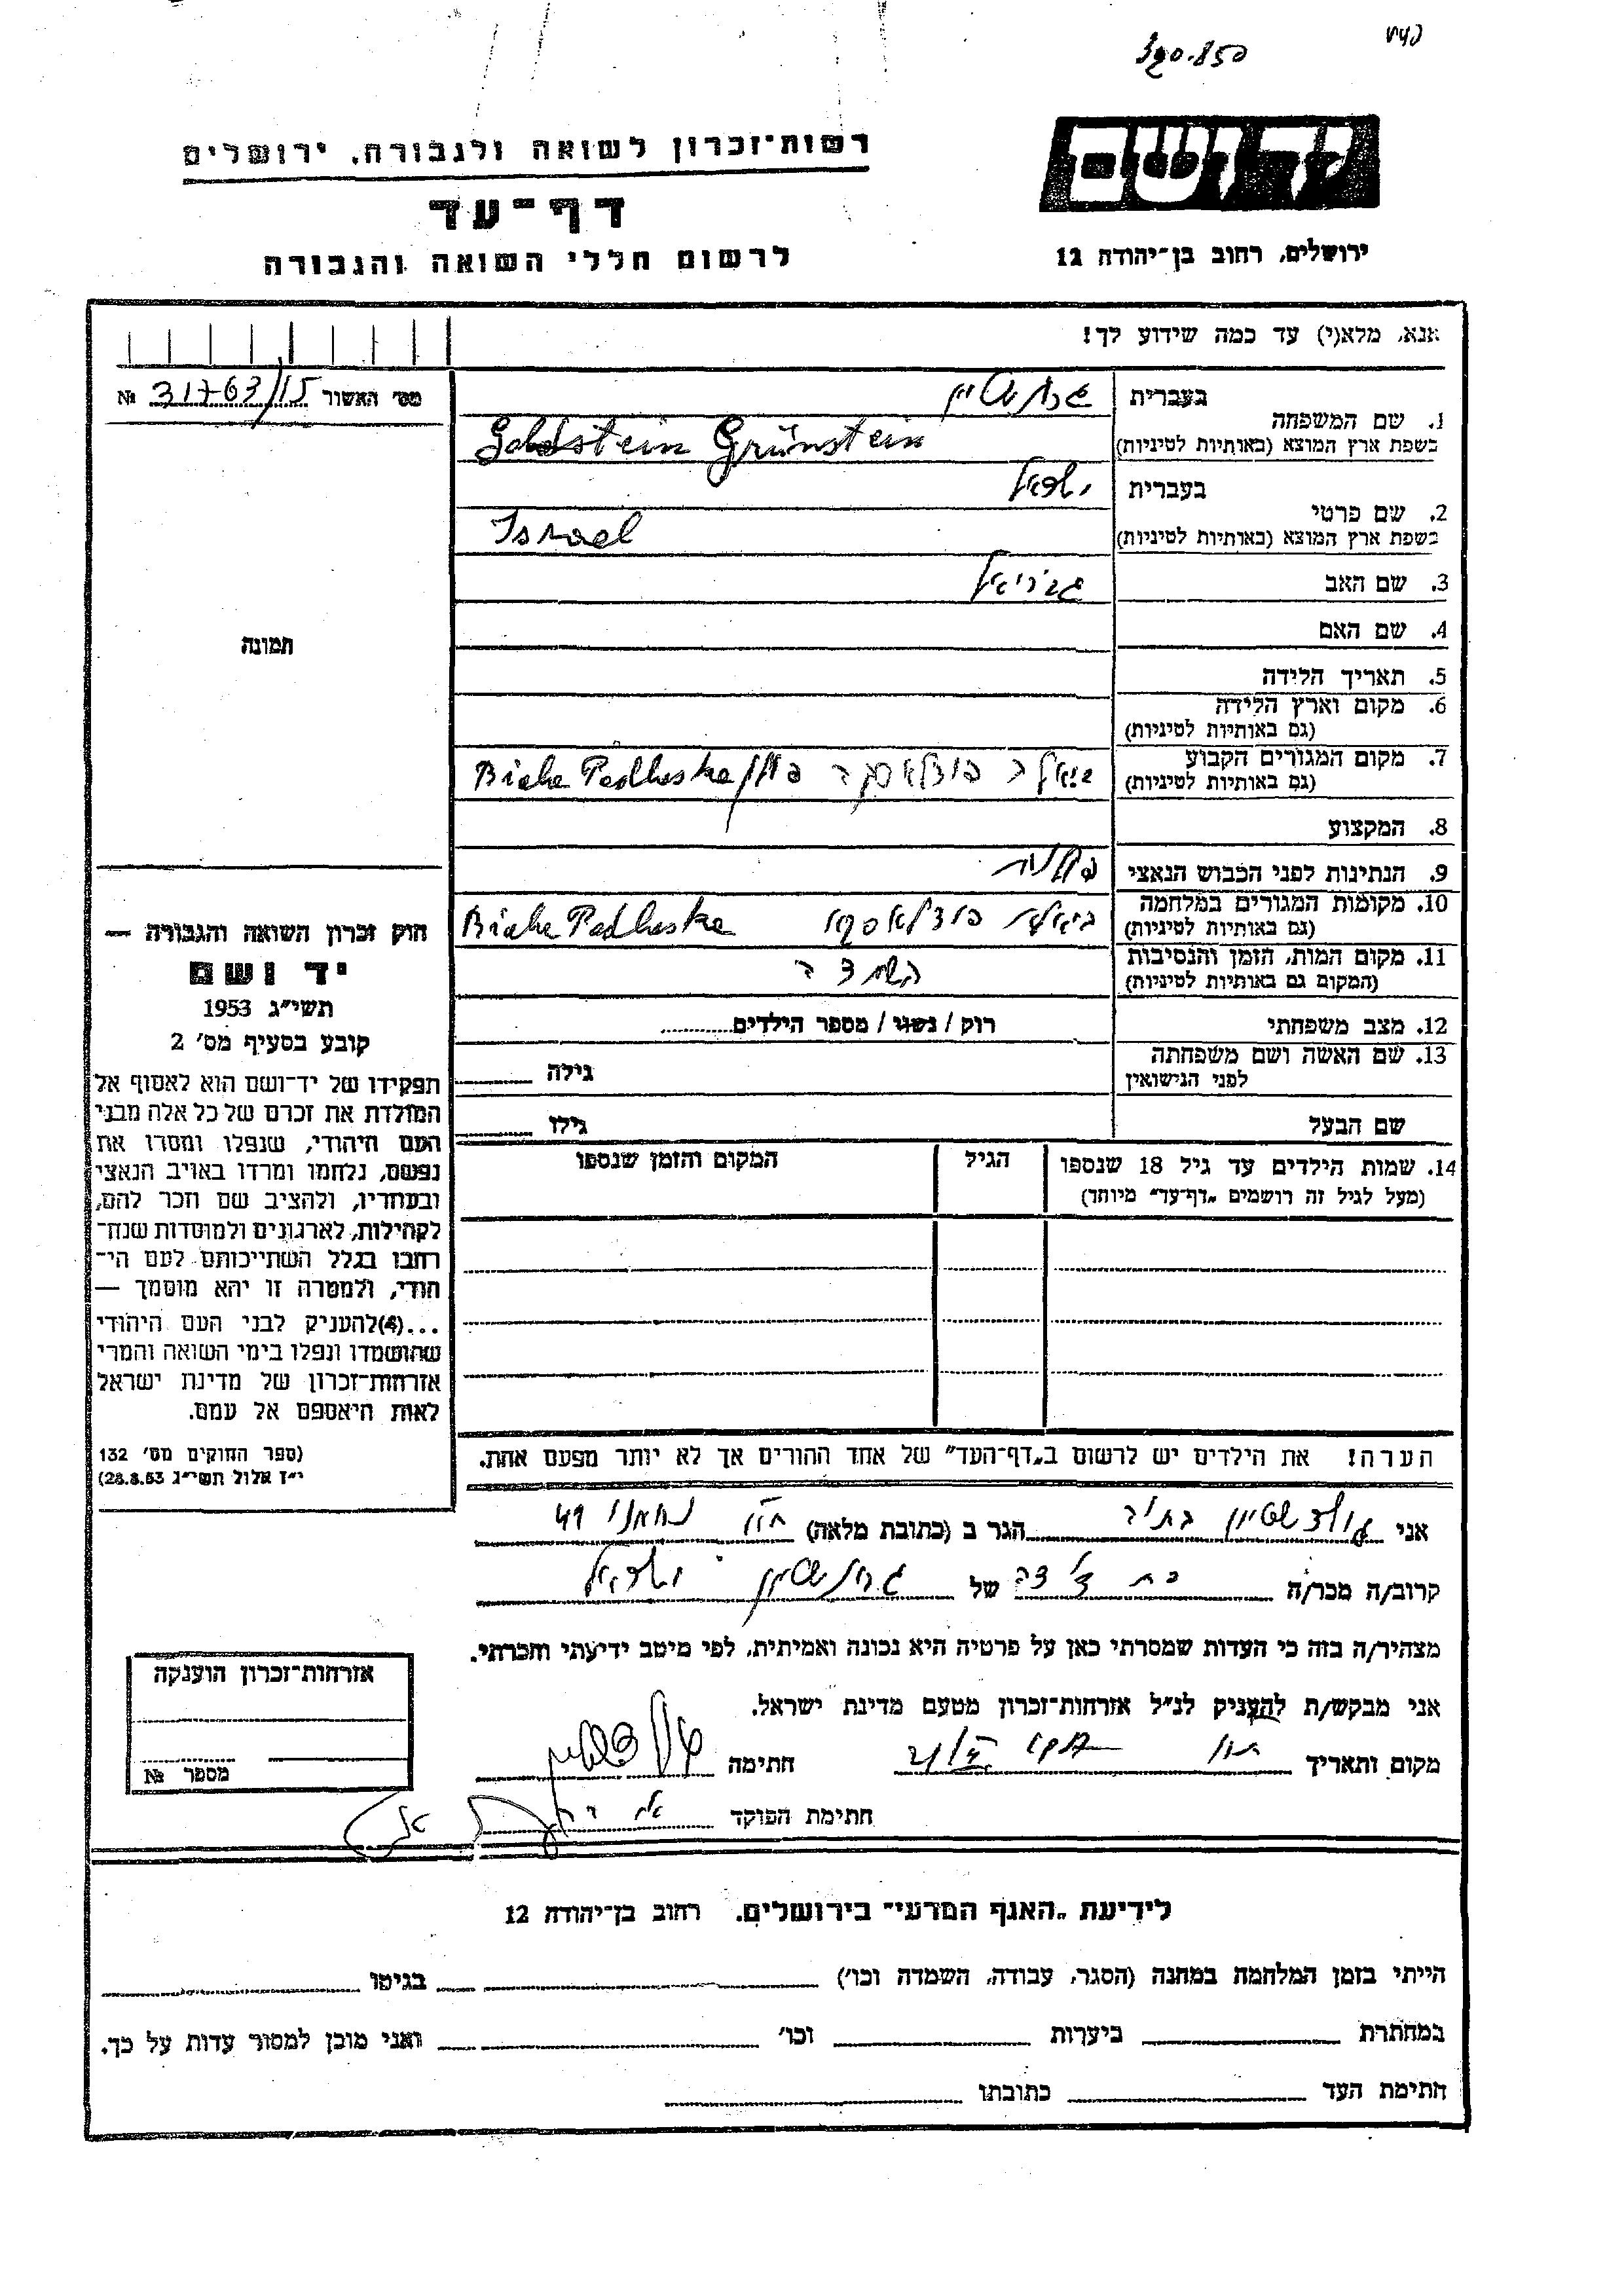 רשות־זכרון לשואה ולגבורה, ירושלים
דף־עד
לרשום חללי השואה והגבורה
ידושם
ירושלים, רחוב בן־יהודה 12
אנא, מלא(י) עד כמה שידוע לך!
מס׳ האשור 31763/15 №
1. שם המשפחה
בעברית גרונשטיין
בשפת ארץ המוצא (באותיות לטיניות) Grünstein
2. שם פרטי
בעברית ישראל
בשפת ארץ המוצא (באותיות לטיניות) Israel
3. שם האב גבריאל
4. שם האם
5. תאריך הלידה
6. מקום וארץ הלידה
(גם באותיות לטיניות)
7. מקום המגורים הקבוע
(גם באותיות לטיניות) פולין Podluska
8. המקצוע
9. הנתינות לפני הכבוש הנאצי פולנית
10. מקומות המגורים במלחמה
(גם באותיות לטיניות) Podluska
11. מקום המות, הזמן והנסיבות
(המקום גם באותיות לטיניות) השמדה
12. מצב משפחתי רוק / נשוי / מספר הילדים
13. שם האשה ושם משפחתה
לפני הנישואין
גילה
שם הבעל גילו
14. שמות הילדים עד גיל 18 שנספו הגיל המקום והזמן שנספו
(מעל לגיל זה רושמים „דף־עד״ מיוחד)
הערה! את הילדים יש לרשום ב„דף־העד״ של אחד ההורים אך לא יותר מפעם אחת.
תמונה
חוק זכרון השואה והגבורה —
יד ושם
תשי״ג 1953
קובע בסעיף מס׳ 2
תפקידו של יד־ושם הוא לאסוף אל
המולדת את זכרם של כל אלה מבני
העם היהודי, שנפלו ומסרו את
נפשם, נלחמו ומרדו באויב הנאצי
ובעוזריו, ולהציב שם וזכר להם,
לקהילות, לארגונים ולמוסדות שנח־
רבו בגלל השתייכותם לעם הי־
הודי, ולמטרה זו יהא מוסמך —
...(4)להעניק לבני העם היהודי
שהושמדו ונפלו בימי השואה והמרי
אזרחות־זכרון של מדינת ישראל
לאות היאספם אל עמם.
(ספר החוקים מס׳ 132
י״ז אלול תשי״ג 28.8.53)
אני גולדשטיין הגר ב (כתובת מלאה) נחמני 49
קרוב/ה מכר/ה בת דודה של גרונשטיין ישראל
מצהיר/ה בזה כי העדות שמסרתי כאן על פרטיה היא נכונה ואמיתית, לפי מיטב ידיעתי והכרתי.
אני מבקש/ת להעניק לנ״ל אזרחות־זכרון מטעם מדינת ישראל.
מקום ותאריך חתימה
חתימת הפוקד
אזרחות־זכרון הוענקה
מספר №
לידיעת „האגף המדעי״ בירושלים. רחוב בן־יהודה 12
הייתי בזמן המלחמה במחנה (הסגר, עבודה, השמדה וכו׳) בגיטו
במחתרת ביערות וכו׳ ואני מוכן למסור עדות על כך.
חתימת העד כתובתו